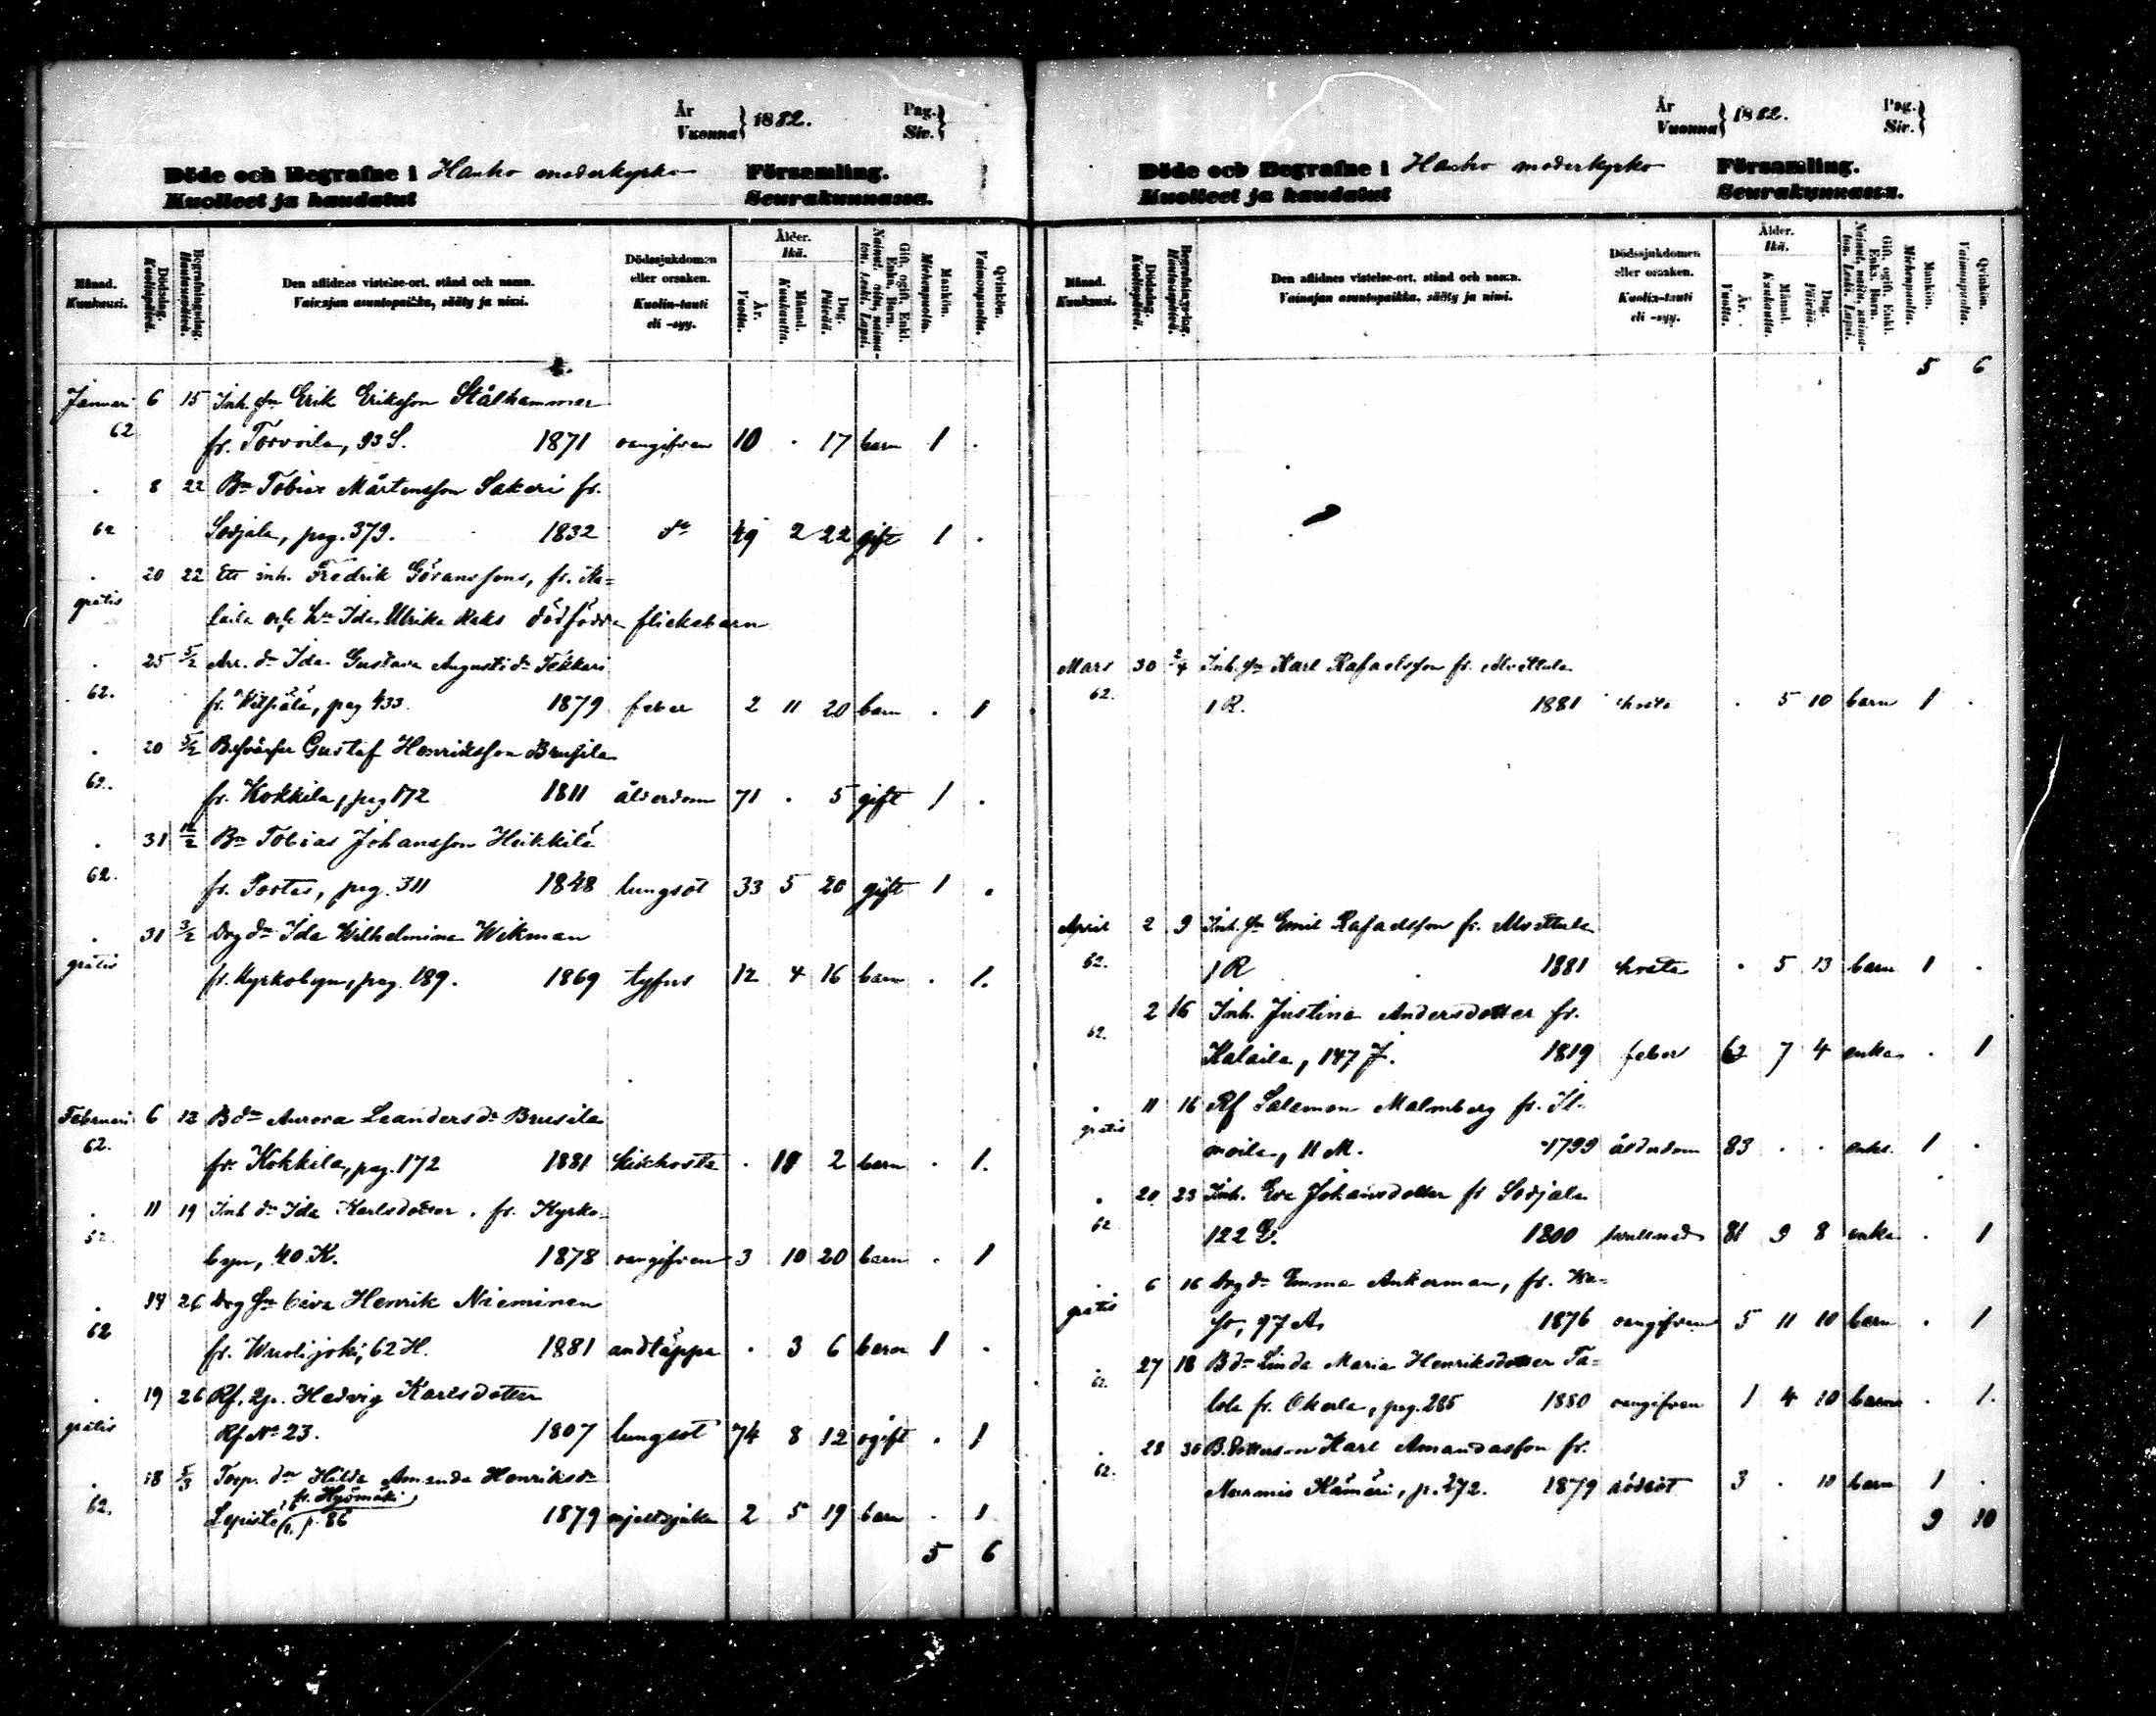 År
Vuonna } 1882. Pag.
Siv. }
Döde och Begrafne i Hauho moderkyrko Församling.
Kuolleet ja haudatut Seurakunnassa.
Månad. Kuukausi. Dödsdag. Kuolinpäivä. Begrafningsdag. Hautauspäivä. Den aflidnes vistelse-ort, stånd och namn. Vainajan asuntopaikka, sääty ja nimi. Dödssjukdomen eller orsaken. Kuolin-tauti eli -syy. Ålder. Ikä. År. Vuotta. Månad. Kuukautta. Dag. Päivää. Gift, ogift, Enkl. Enka, Barn. Nainut, naima-ton, Leski, Lapsi. Mankön. Miehenpuolia. Qvinkön. Vaimonpuolia.
Januari 6 15 Inh. sn Erik Eriksson Stålhammar
62 fr. Torvoila, 93 S. 1871 oangifven 10 . 17 barn 1 .
. 8 22 Bn Tobias Mårtensson Sakeri fr.
62 Sodjala, pag. 379. 1832 do 49 2 22 gift 1 .
. 20 22 Ett inh. Fredrik Göranssons, fr. Ka=
gratis laila och hu Ida Ulrika Raks dödfödda flickebarn
. 25 5/2 Arr. dr Ida Gustava Augustidr Tekkari
62. pag 433. 1879 feber 2 11 20 barn . 1
. 20 5/2 Gustaf Henriksson Brusila
62. fr. Kokkila, pag 172 1811 ålderdom 71 . 5 gift 1 .
. 31 12/2 Bn Tobias Johansson Heikkilä
62. fr. Portas, pag. 311 1848 lungsot 33 5 20 gift 1 .
. 31 3/2 Drg dr Ida Wilhelmina Wikman
gratis fr. Kyrkobyn, pag. 189. 1869 tyfus 12 4 16 barn . 1.
Februari 6 12 B dr Aurora Leandersdr Brusila
62. fr. Kokkila, pag. 172 1881 kikhosta . 2 barn . 1.
. 11 19 Inh dr Ida Karlsdotter. fr. Kyrko-
62. byn, 40 K. 1878 oangifven 3 10 20 barn . 1
. 19 26 Drg sn Henrik Nieminen
62 fr. Wuolijoki, 62 H. 1881 andtäppa . 3 6 barn 1 .
. 19 26 Rf. Hedvig Karlsdotter
gratis Rf No 23. 1807 lungsot 74 8 12 ogift . 1
. 18 5/3 Torp. dr Hilda Amanda Henriksdr
fr. Hyömäki
62. Lepistö p. 86 1879 mjeltsjuka 2 5 19 barn . 1
5 6
År
Vuonna } 1882. Pag.
Siv. }
Döde och Begrafne i Hauho moderkyrko Församling.
Kuolleet ja haudatut Seurakunnassa.
Månad. Kuukausi. Dödsdag. Kuolinpäivä. Begrafningsdag. Hautauspäivä. Den aflidnes vistelse-ort, stånd och namn. Vainajan asuntopaikka, sääty ja nimi. Dödssjukdomen eller orsaken. Kuolin-tauti eli -syy. Ålder. Ikä. År. Vuotta. Månad. Kuukautta. Dag. Päivää. Gift, ogift, Enkl. Enka, Barn. Nainut, naima-ton, Leski, Lapsi. Mankön. Miehenpuolia. Qvinkön. Vaimonpuolia.
5 6
Mars 30 2/4 Inh. sn Karl Rafaelsson fr. Miettula
62. 1 R. 1881 hosta . 5 10 barn 1 .
April 2 9 Inh. sn Emil Rafaelsson fr. Miettula
62. 1 R 1881 hosta . 5 13 barn 1 .
2 16 Inh. Justina Andersdotter fr.
62. Kalaila, 147 J. 1819 feber 62 7 4 enka . 1
. 11 16 Rf Salomon Malmberg fr. Il-
gratis moila, 11 M. 1799 ålderdom 83 . . enkl. 1 .
. 20 23 Inh. Eva Johansdotter fr Sodjala
62 122 E. 1800 svullnad 81 9 8 enka . 1
. 6 16 Drg dr Emma Ankerman, fr.
gratis 97 A. 1876 oangifven 5 11 10 barn . 1
27 18 B dr Linda Maria Henriksdotter Ta=
62. lola fr. Okerla, pag. 285 1880 oangifven 1 4 10 barn . 1.
. 28 30 B. dotterson Karl Amandasson fr.
62. Nurmis Kämäri, p. 272. 1879 rödsot 3 . 10 barn 1 .
9 10